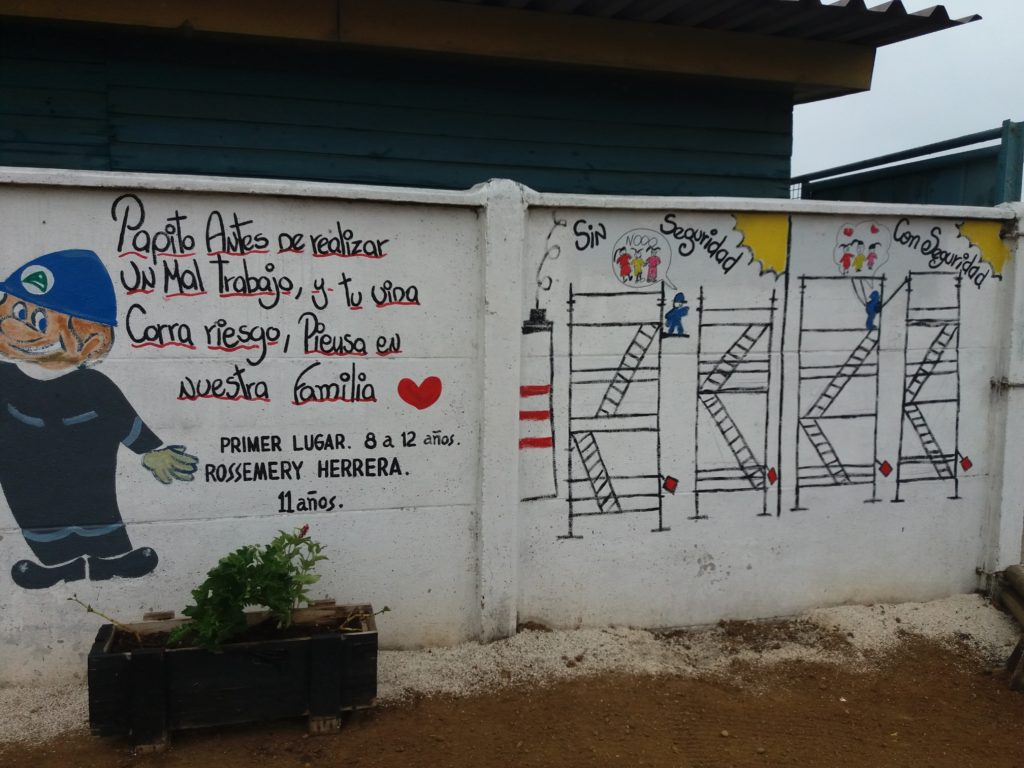 Papito Antes De realizar
UN Mal Trabajo, y tu vida
Corra riesgo, Piensa en
Nuestra Familia
PRIMER LUGAR. 8 a 12 años.
ROSSEMERY HERRERA.
11 años.
Sin Seguridad
NOOO
Con Seguridad